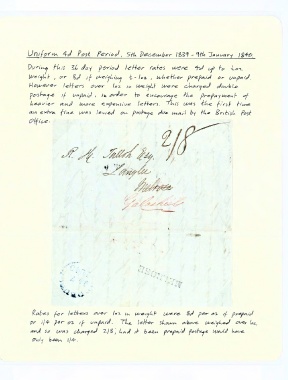 Uniform 4d Post Period, 5th December 1839 - 9th January 1840
During this 36 day period letter rates were 4d up to ½oz
weight, or 8d if weighing ½-1oz, whether prepaid or unpaid.
However letters over 1oz in weight were charged double
postage if unpaid in order to encourage the prepayment of
heavier and more expensive letters. This was the first time
an extra fine was levied on postage due mail by the British Post
Office.
2/8
Esq.
Melrose
Galashiels
Rates for letters over 1oz in weight were 8d per oz if prepaid
or 1/4 per oz if unpaid. The letter shown above weighed over 1oz
and so was charged 2/8, had it been prepaid postage would have
only been 1/4.